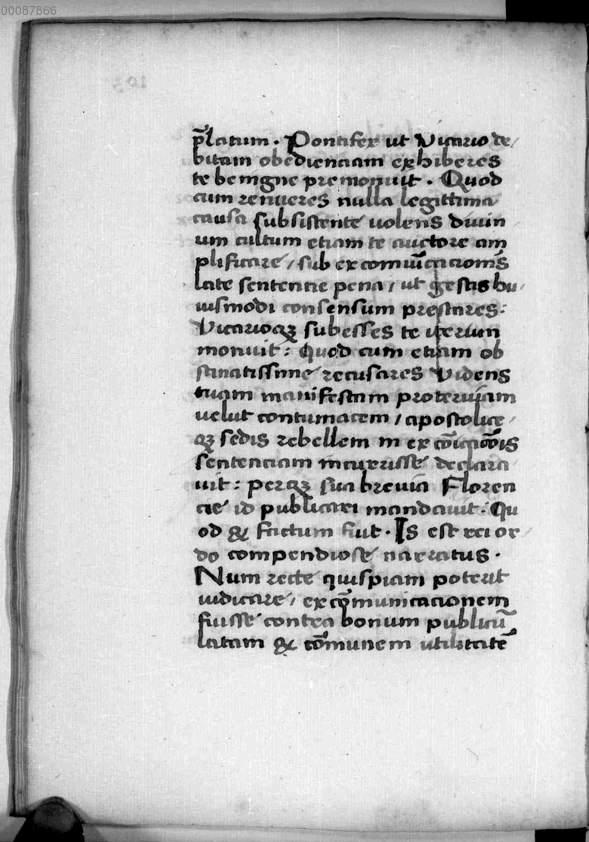 00087866
p̄latum. Pontifex ut Vicario de/
bitam obedienciam exhiberes
te benigne premonuit. Quod
cum renueres nulla legittima
causa subsistente uolens diuin
um cultum etiam te auctore am
plificare/ sub excom̄unicacionis̄
late sentencie pena/ ut gestis hu/
iusmodi consensum prestares:
Vicarioqꝫ subesses te iterum
monuit: Quod cum etiam ob
stinatissime recusares Videns
tuam manifestam proteruiam
uelut contumacem/ apostolice/
qꝫ sedis rebellem in
sentenciam incurrisse declara
uit: perqꝫ sua breuia Floren
cie id publicari mandauit. Qu
od & factum fuit. Is est rei or/
do compendiose narratus.
Num recte quispiam poterit
iudicare/ excōmunicacionem
fuisse contra bonum publicū
latam & cōmunem utilitatē